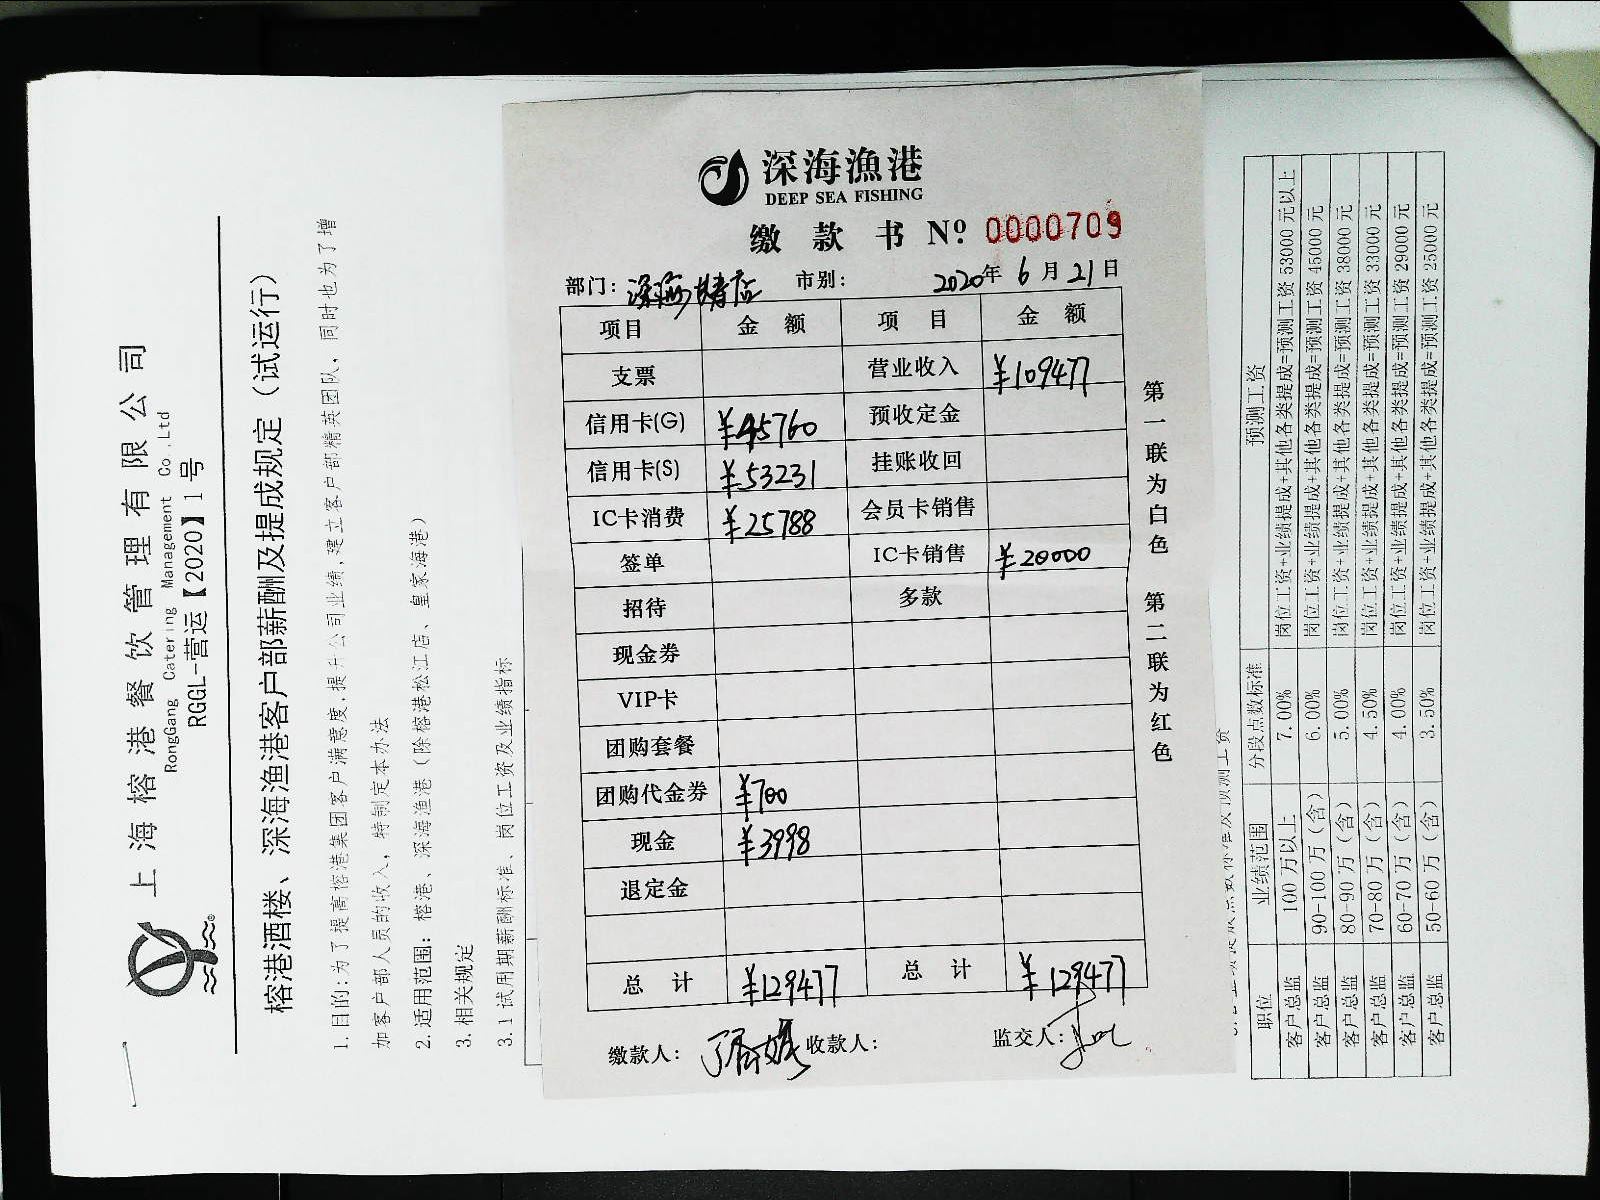 上海榕港餐饮管理有限公司
RongGang Catering Management Co.,Ltd
RGGL-营运【2020】1号
榕港酒楼、深海渔港客户部薪酬及提成规定（试运行）
1.目的:为了提高榕港集团客户满意度,提升公司业绩,建立客户部精英团队，同时也为了增
加客户部人员的收入，特制定本办法
2.适用范围：榕港、深海渔港（除榕港松江店、皇家海港）
3.相关规定
3.1试用期薪酬标准、岗位工资及业绩指标
深海漁港
DEEP SEA FISHING
缴款书 Nº 0000709
部门: 市别: 2020年6月21日
项目 金额 项目 金额
支票 营业收入 ¥109477
信用卡(G) ¥45760 预收定金
信用卡(S) ¥53231 挂账收回
IC卡消费 ¥25788 会员卡销售
签单 IC卡销售 ¥20000
招待 多款
现金券
VIP卡
团购套餐
团购代金券 ¥700
现金 ¥3998
退定金
总计 ¥129477 总计 ¥129477
缴款人: 收款人: 监交人:
第一联为白色 第二联为红色
职位 业绩范围 分段点数标准 预测工资
客户总监 100万以上 7.00% 岗位工资+业绩提成+其他各类提成=预测工资53000元以上
客户总监 90-100万（含） 6.00% 岗位工资+业绩提成+其他各类提成=预测工资45000元
客户总监 80-90万（含） 5.00% 岗位工资+业绩提成+其他各类提成=预测工资38000元
客户总监 70-80万（含） 4.50% 岗位工资+业绩提成+其他各类提成=预测工资33000元
客户总监 60-70万（含） 4.00% 岗位工资+业绩提成+其他各类提成=预测工资29000元
客户总监 50-60万（含） 3.50% 岗位工资+业绩提成+其他各类提成=预测工资25000元